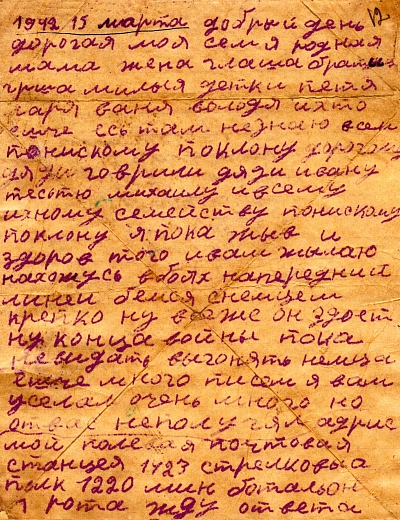 12
1942 15 марта добрый день
дорогая моя семя родная
мама жена глаша братиц
гриша милыя детки петя
гаря ваня володя ихто
еиче есь там незнаю всем
понискому поклону дорогому
дяди говрили дязи ивану
тестю михаилу ивсему
ихному семейству понискому
поклону я пока жыв и
здоров того ивам жылаю
нахожусь вбоях напередний
линеи бемся снемцем
крепко ну все же он здоет
ну конца войны пока
невидать выгонять немца
еиче много писем я вам
уселал очень много но
отвас неполучял адрис
мой полевая почтовая
станцея 1423 стрелковыа
полк 1220 мин баталион
1 рота жду ответа